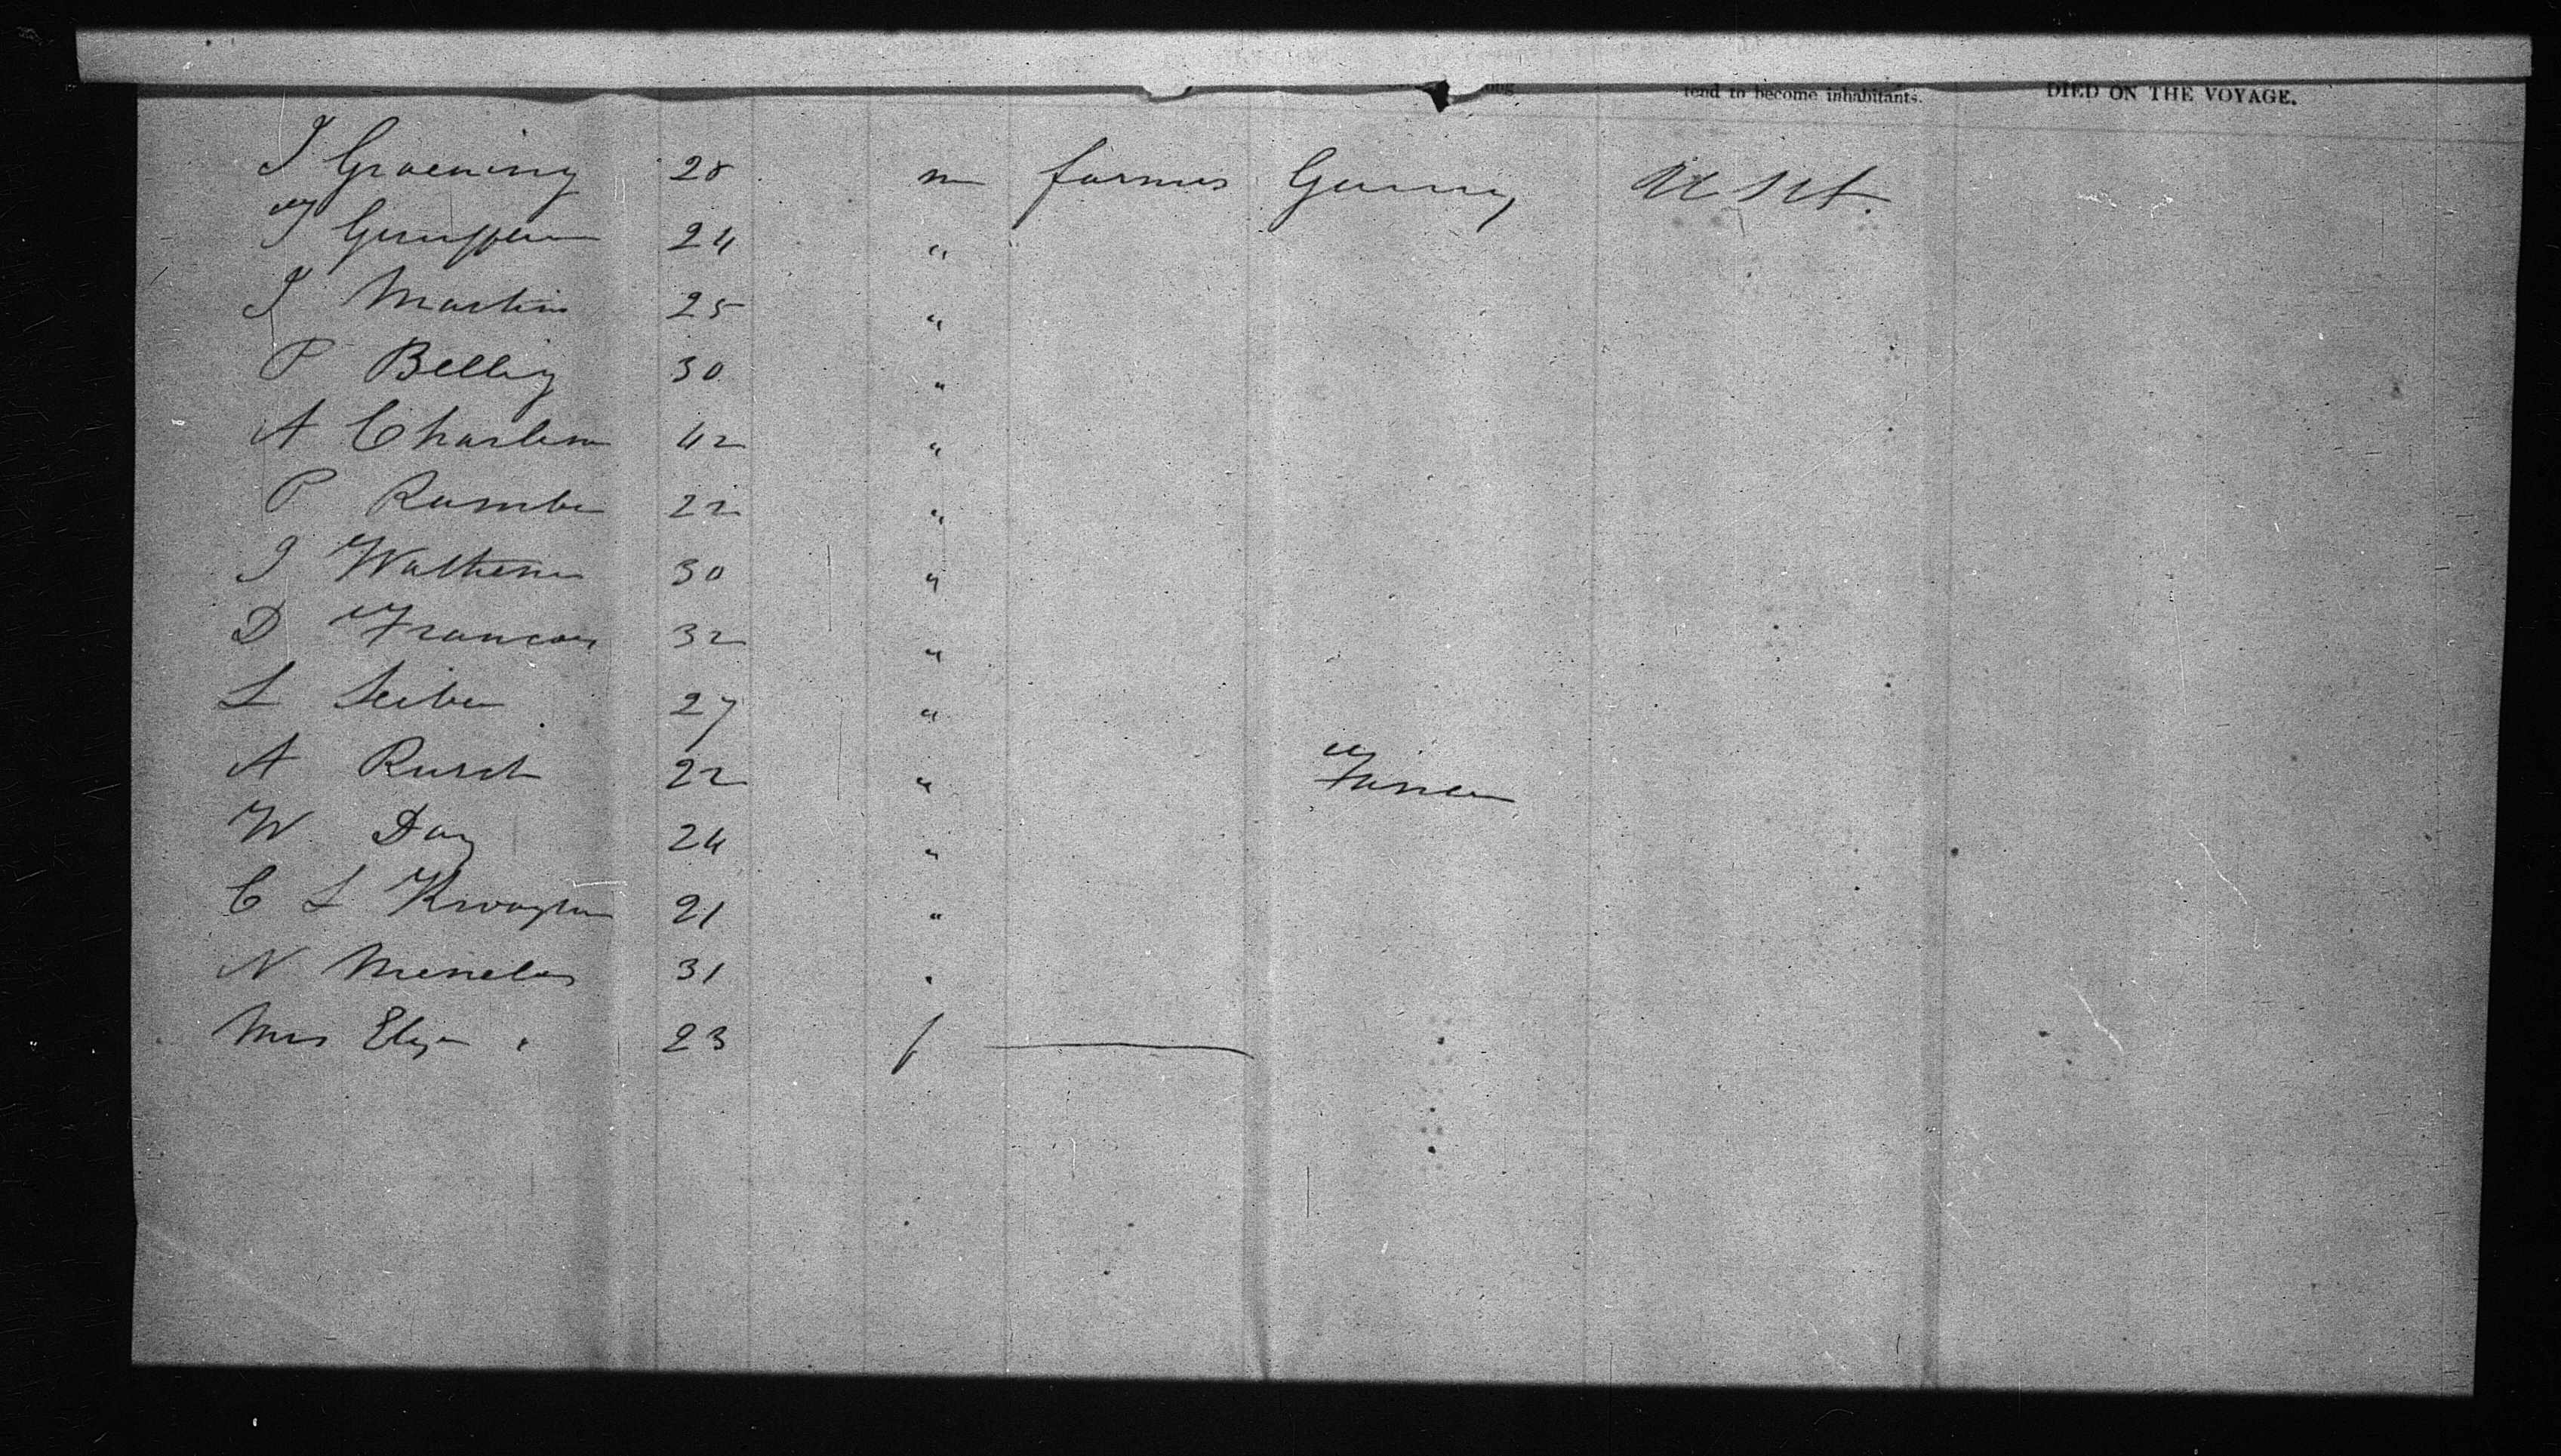 tend to become inhabitants. DIED ON THE VOYAGE.
J Groening 28 m farmer Germy USA.
F 24 "
J Martin 25 "
P Bellig 30 "
A Charlem 42 "
P 22 "
J 30 "
D Francois 32 "
L Seiber 27 "
A Rusch 22 " France
W Day 24 "
C L 21 "
N Menelas 31 "
Mrs Eliza " 23 f